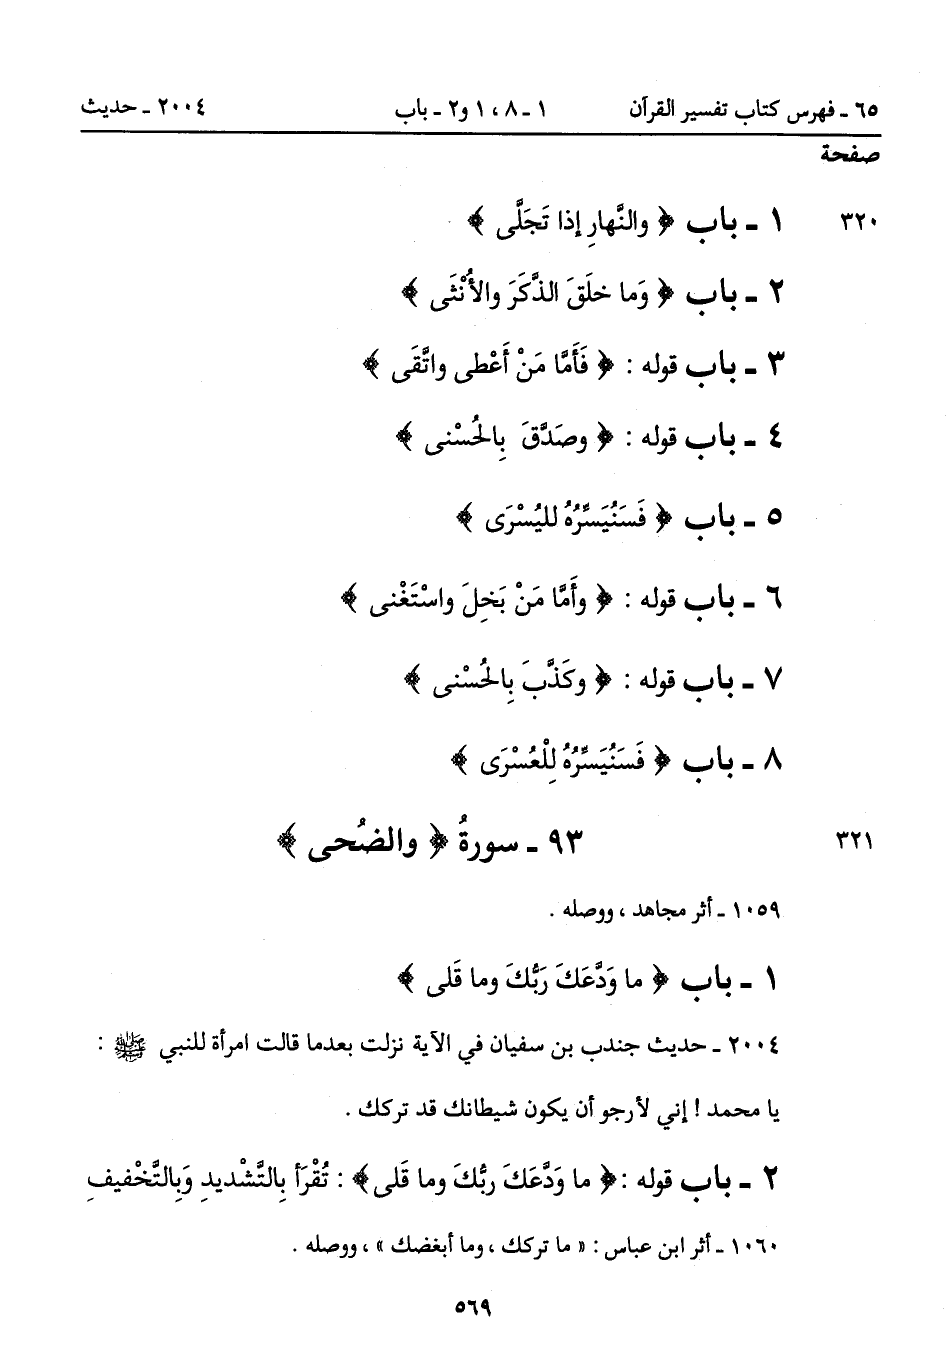 ٦٥ ـ فهرس كتاب تفسير القرآن ١ ـ ٨ ، ١ و٢ ـ باب ٢٠٠٤ ـ حديث
صفحة
٣٢٠ ١ ـ باب ﴿ والنَّهارِ إذا تَجَلَّى ﴾
٢ ـ باب ﴿ وَما خلَقَ الذَّكَرَ والأُنْثَى ﴾
٣ ـ باب قوله : ﴿ فَأَمَّا مَنْ أَعْطى واتَّقَى ﴾
٤ ـ باب قوله : ﴿ وصَدَّقَ بِالحُسْنى ﴾
٥ ـ باب ﴿ فَسَنُيَسِّرُهُ لليُسْرَى ﴾
٦ ـ باب قوله : ﴿ وأَمَّا مَنْ بَخِلَ واسْتَغْنى ﴾
٧ ـ باب قوله : ﴿ وكَذَّبَ بِالحُسْنى ﴾
٨ ـ باب ﴿ فَسَنُيَسِّرُهُ لِلْعُسْرَى ﴾
٣٢١ ٩٣ ـ سورةُ ﴿ والضُحى ﴾
١٠٥٩ ـ أثر مجاهد ، ووصله .
١ ـ باب ﴿ ما وَدَّعَكَ رَبُّكَ وما قَلى ﴾
٢٠٠٤ ـ حديث جندب بن سفيان في الآية نزلت بعدما قالت امرأة للنبي ﷺ :
يا محمد ! إني لأرجو أن يكون شيطانك قد تركك .
٢ ـ باب قوله : ﴿ ما وَدَّعَكَ ربُّكَ وما قَلى ﴾ : تُقْرَأ بِالتَّشْديدِ وَبِالتَّخْفيفِ
١٠٦٠ ـ أثر ابن عباس : « ما تركك ، وما أبغضك » ، ووصله .
٥٦٩